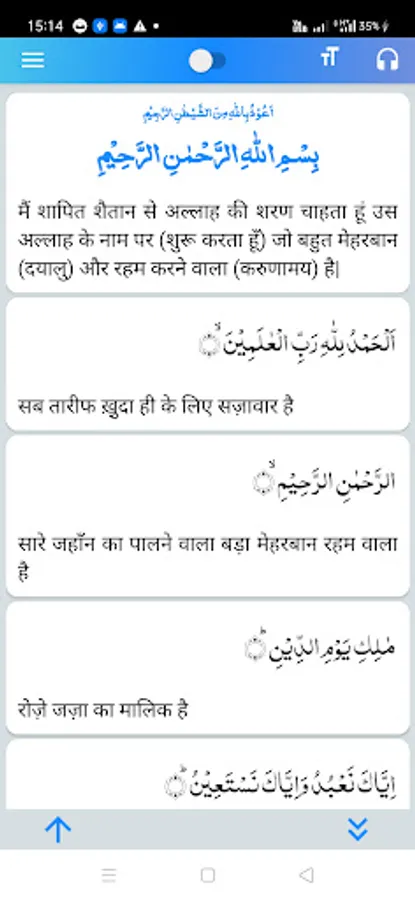 15:14
35%
TT
اَعُوْذُ بِاللّٰهِ مِنَ الشَّيْطٰنِ الرَّجِيْمِ
بِسْمِ اللّٰهِ الرَّحْمٰنِ الرَّحِيْمِ
मैं शापित शैतान से अल्लाह की शरण चाहता हूं उस
अल्लाह के नाम पर (शुरू करता हूँ) जो बहुत मेहरबान
(दयालु) और रहम करने वाला (करुणामय) है|
اَلْحَمْدُ لِلّٰهِ رَبِّ الْعٰلَمِيْنَۙ
सब तारीफ ख़ुदा ही के लिए सज़ावार है
الرَّحْمٰنِ الرَّحِيْمِۙ
सारे जहाँन का पालने वाला बड़ा मेहरबान रहम वाला
है
مٰلِكِ يَوْمِ الدِّيْنِؕ
रोज़े जज़ा का मालिक है
اِيَّاكَ نَعْبُدُ وَاِيَّاكَ نَسْتَعِيْنُؕ